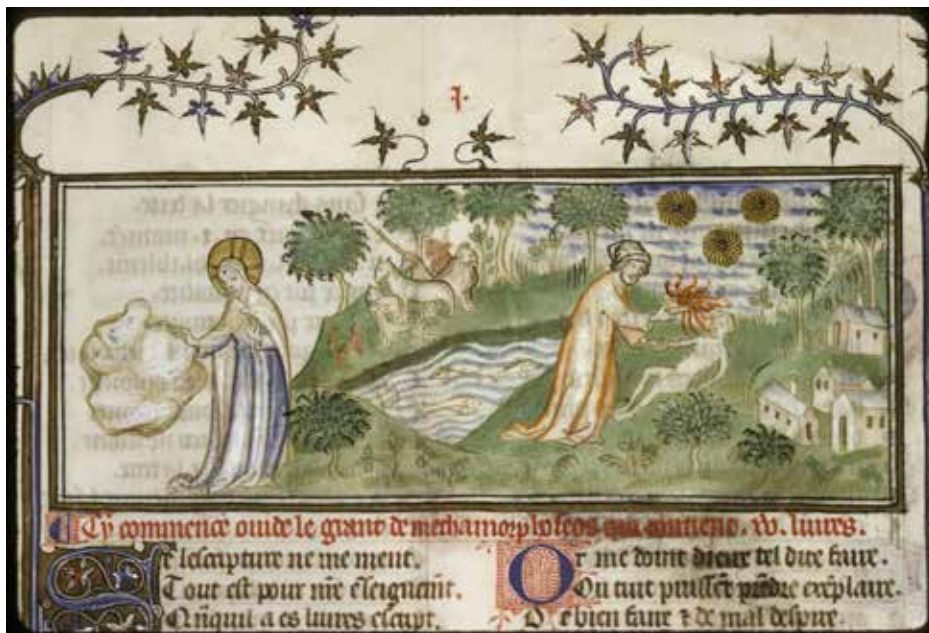 .i.
Cy commence ouide le grant de methamorphoseos qui contient .xv. liures.
Se lescripture ne me ment.
Tout est pour nre enseignemt.
Quanqil a es liures escript.
Or me doint dieux tel dite faire.
On tuit puissent prendre exēplaire.
De bien faire & de mal despire.